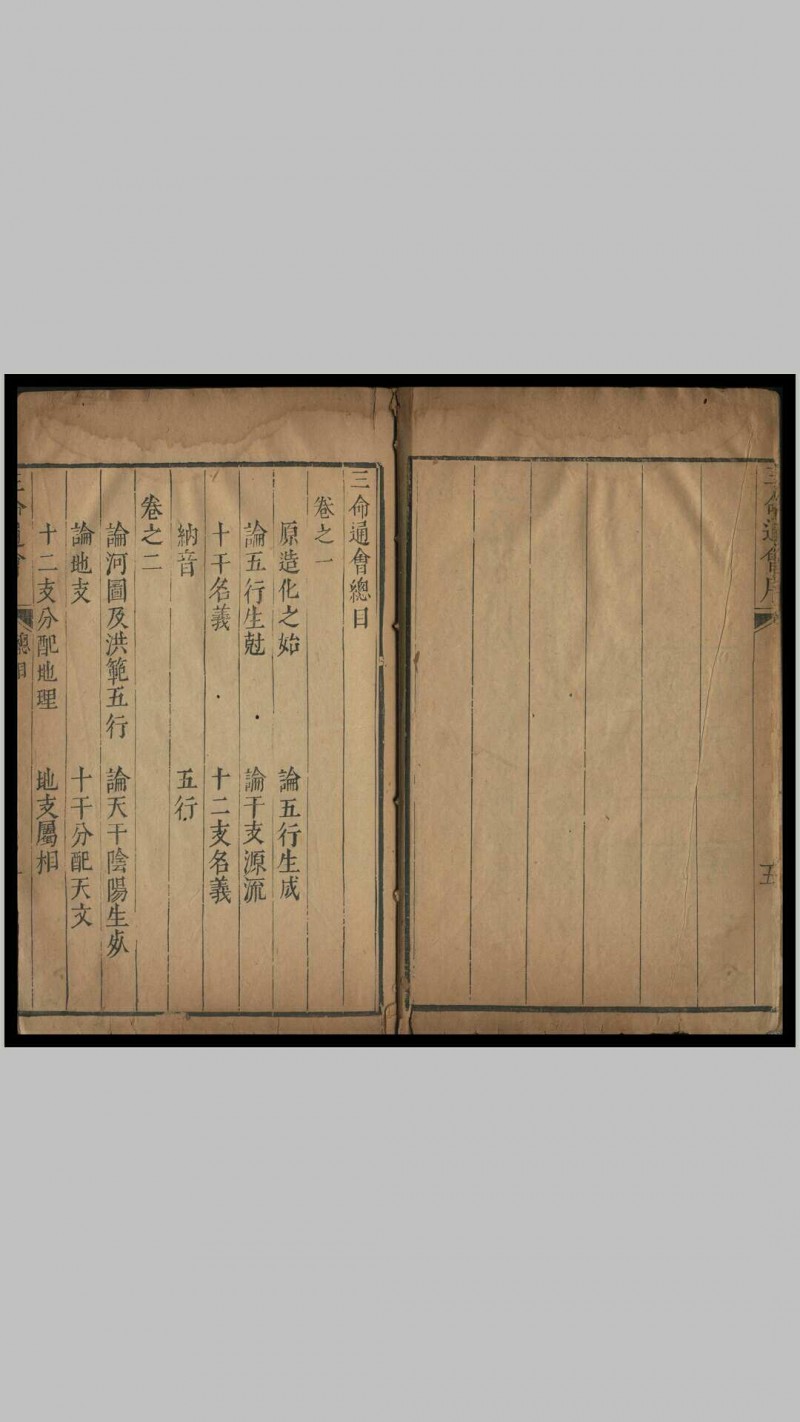 三命通會序
五
三命通會總目
卷之一
原造化之始 論五行生成
論五行生尅 論干支源流
十干名義 十二支名義
納音 五行
卷之二
論河圖及洪範五行 論天干陰陽生死
論地支 十干分配天文
十二支分配地理 地支屬相
三命通會 總目